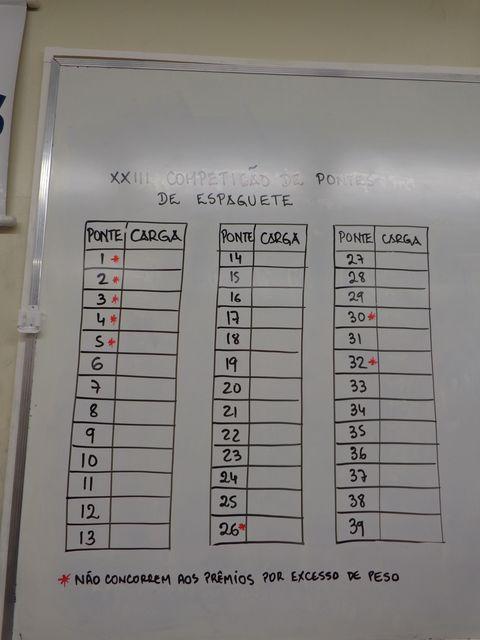 XXIII COMPETIÇÃO DE PONTES
DE ESPAGUETE
PONTE CARGA
1 *
2 *
3 *
4 *
5 *
6
7
8
9
10
11
12
13
PONTE CARGA
14
15
16
17
18
19
20
21
22
23
24
25
26*
PONTE CARGA
27
28
29
30*
31
32*
33
34
35
36
37
38
39
* NÃO CONCORREM AOS PRÊMIOS POR EXCESSO DE PESO